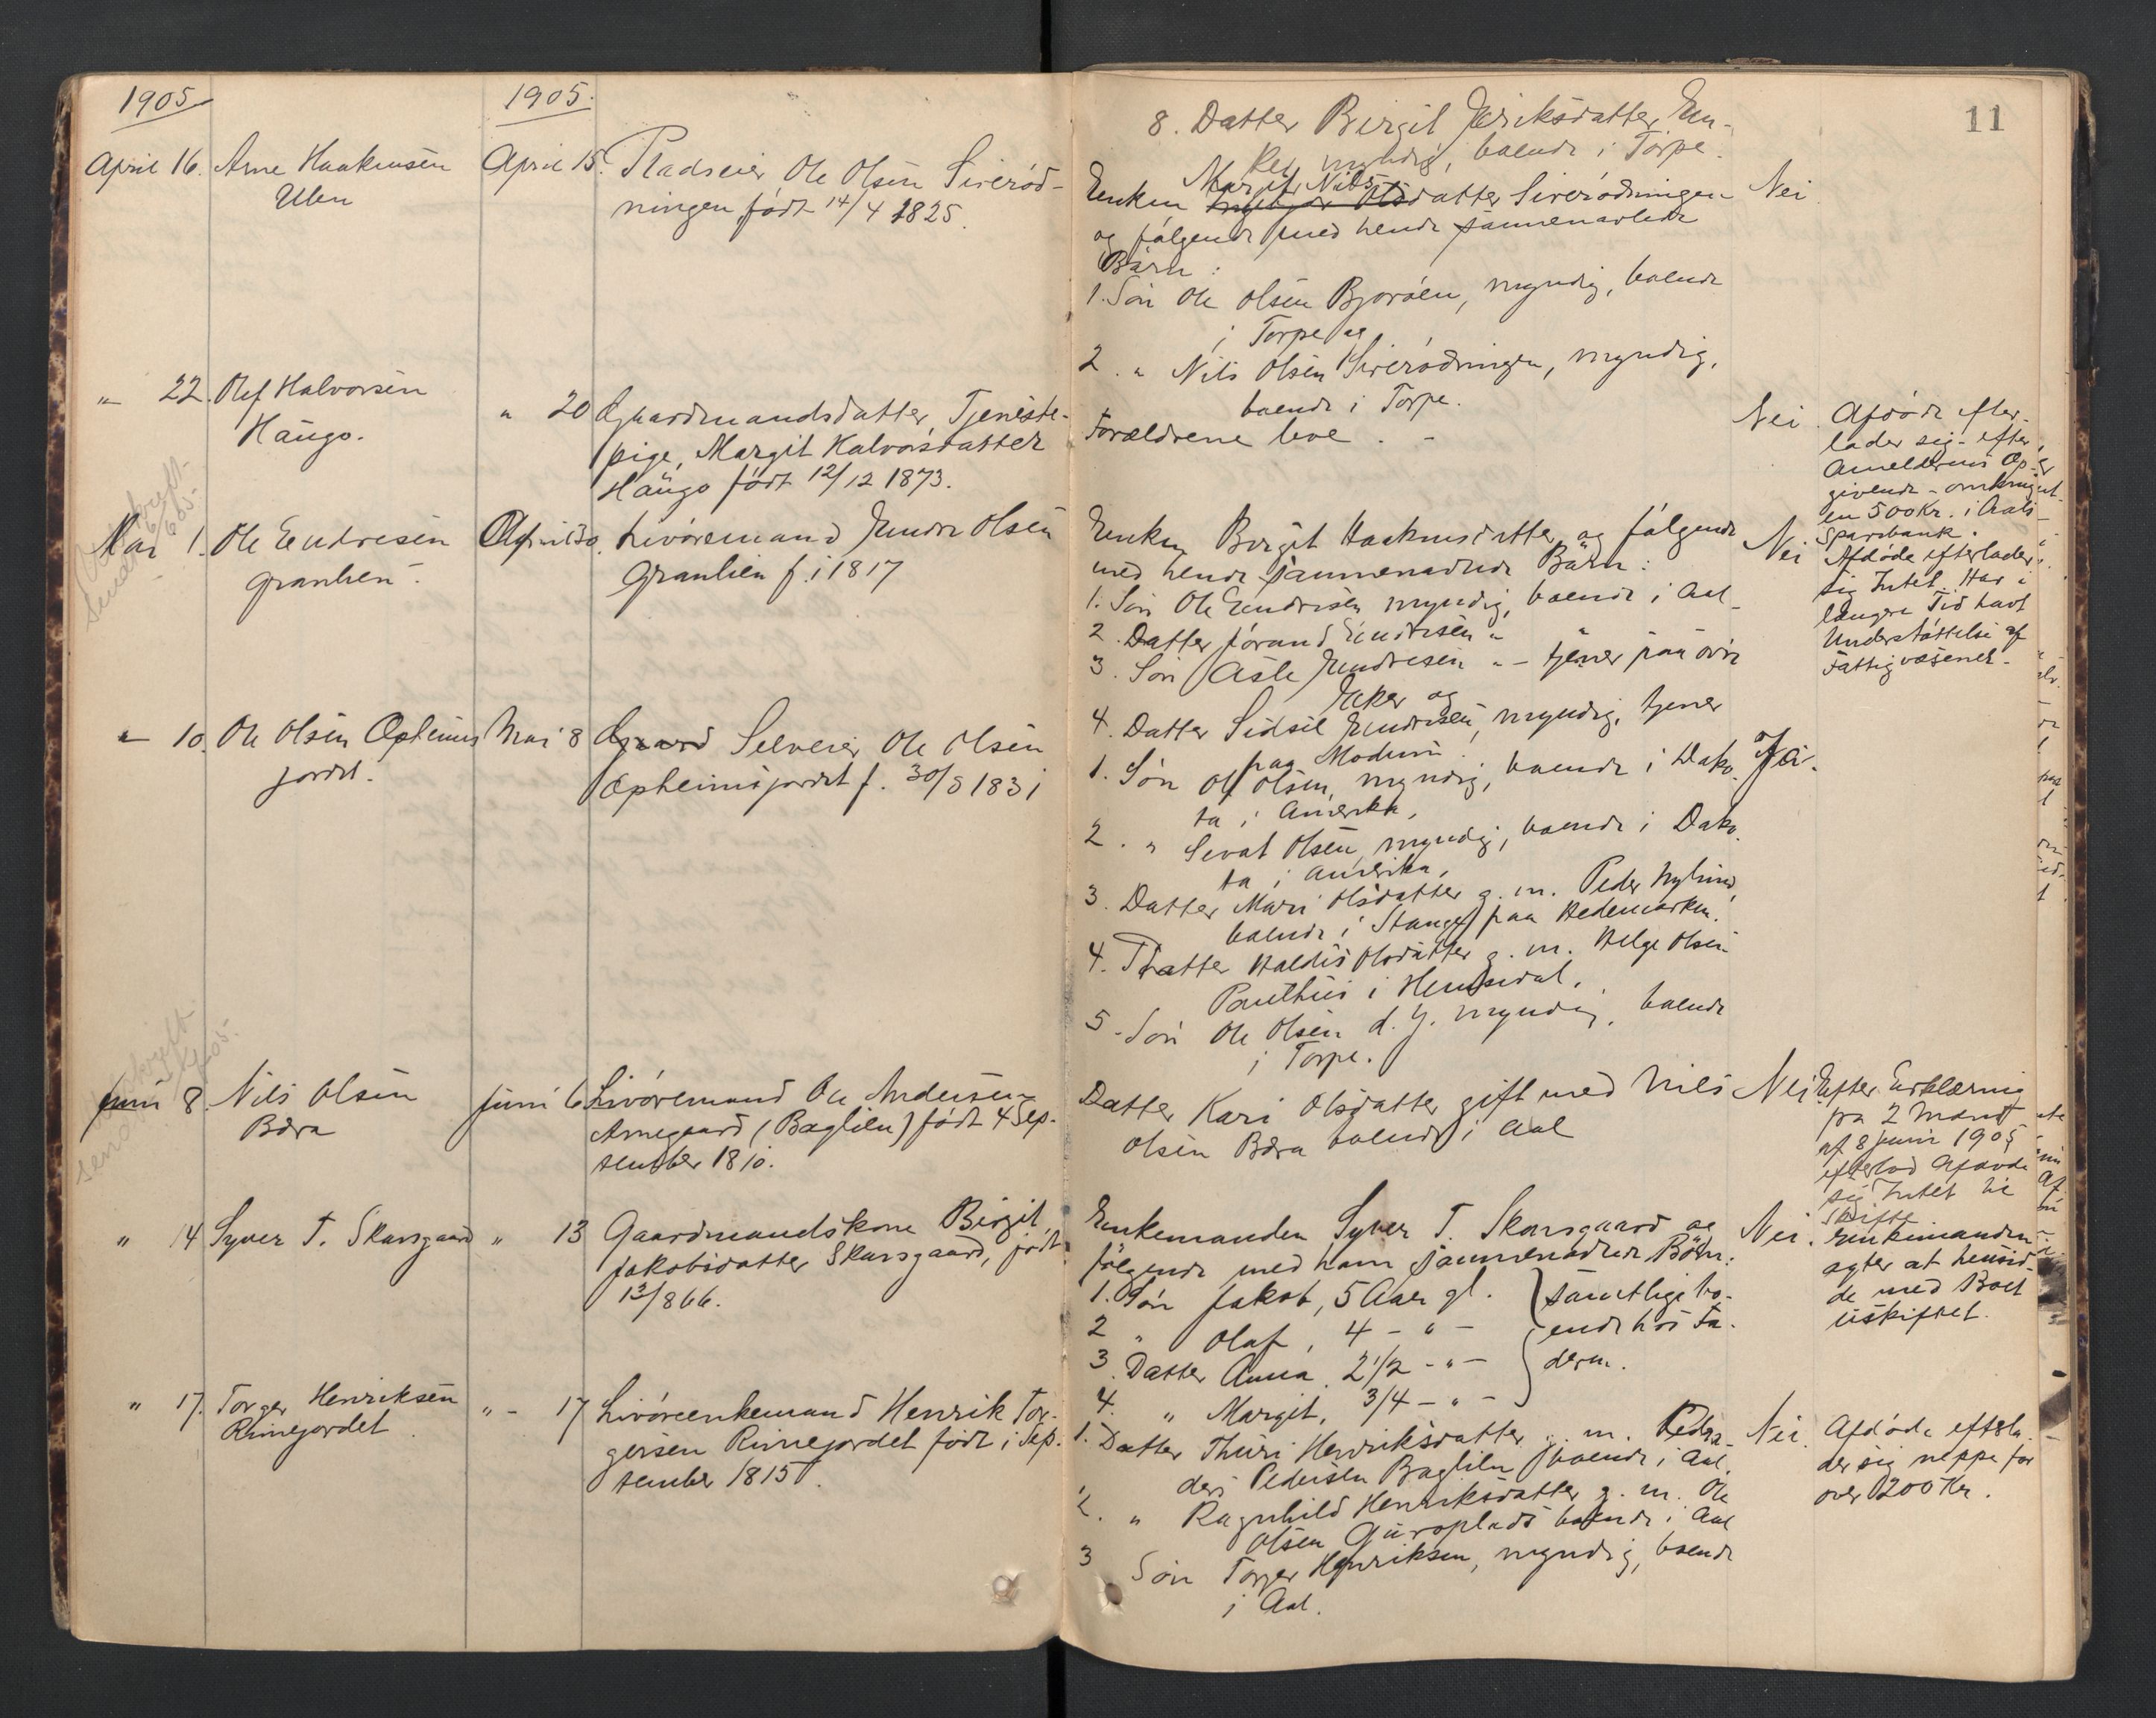 1905
1905.
April 16. Arne Haakensen
Ulen
April 15. Pladseier Ole Olsen Sirerød-
ningen født 14/4 1825.
" 22. Olef Halvorsen
Haugo.
" 20 Gaardmandsdatter Tjeneste-
pige, Margit Halvorsdatter
Haugo født 12/12 1873.
Mai 1. Ole Endresen
Granlien.
April 30. Livøremand Endre Olsen
Granlien f. i 1817
" 10. Ole Olsen Opheims
jordet.
Mai 8 Selveier Ole Olsen
Opheimsjordet f. 30/8 1831
Juni 8. Nils Olsen
Bæra
Juni 6 Livøremand Ole Andersen
Arnegaard (Baglien) født 4 Sep-
tember 1810.
" 14 Syver T. Skarsgaard
" 13 Gaardmandskone Birgit
Jakobsdatter Skarsgaard, født
13/8 66.
" 17. Torger Henriksen
Rimejordet
" - 17 Livøreenkemand Henrik Tor-
gersen Rimejordet født i Sep-
tember 1815.
11
8. Datter Birgit Eriksdatter, En-
ke, myndig, boende i Torpe.
Margit Nils
Enken datter Sirerødningen
og følgende med hende sammenavlede
Børn:
1. Søn Ole Olsen Bjorøen, myndig, boende
i Torpe og
2. " Nils Olsen Sirerødningen, myndig,
boende i Torpe.
Nei
Forældrene leve. -
Nei. Afdøde efter-
lader sig - efter
Anmelderens Op-
givende - omkring
en 500 Kr. i Aals
Sparebank.
Enken Birgit Haakensdatter og følgende
med hende sammenavlede Børn:
1. Søn Ole Endresen myndig, boende i Aal
2. Datter Jørand Endresen " "
3. Søn Asle Endresen " - tjener paa øvre
Eker og
4. Datter Sidsel Endresen, myndig, tjener
paa Modum.
Nei Afdøde efterlader
sig Intet. Har i
længere Tid havt
Understøttelse af
Fattigvæsenet.
1. Søn Olf Olsen, myndig, boende i Dako-
ta i Amerika,
2. " Sevat Olsen, myndig, boende i Dako-
ta i Amerika,
3. Datter Mari Olsdatter g. m. Peder Nylund,
boende i Stange paa Hedemarken.
4. Datter Haldis Olsdatter g. m. Helge Olsen
i Hemsedal.
5. Søn Ole Olsen d. y. myndig, boende
i Torpe.
Ja.
Datter Kari Olsdatter gift med Nils
Olsen Bæra boende i Aal
Nei Efter Erklæring
fra 2 Mænd
af 8 Juni 1905
efterlod Afdøde
sig Intet til
Skifte
Enkemanden Syver T. Skarsgaard og
følgende med ham sammenavlede Børn:
1. Søn Jakob, 5 Aar gl.
2 " Olaf, 4 - " -
3. Datter Anna, 2 1/2 - " -
4. " Margit, 3/4 - " -
samtlige bo-
ende hos Fa-
deren.
Nei. Enkemanden
agter at hensid-
de med Boet
uskiftet.
1. Datter Thuri Henriksdatter g. m. Peder
Pedersen Baglien boende i Aal.
2. " Ragnhild Henriksdatter g. m. Ole
Olsen Guroplads boende i Aal
3 Søn Torger Henriksen, myndig, boende
i Aal.
Nei. Afdøde efterla-
der sig neppe for
over 200 Kr.